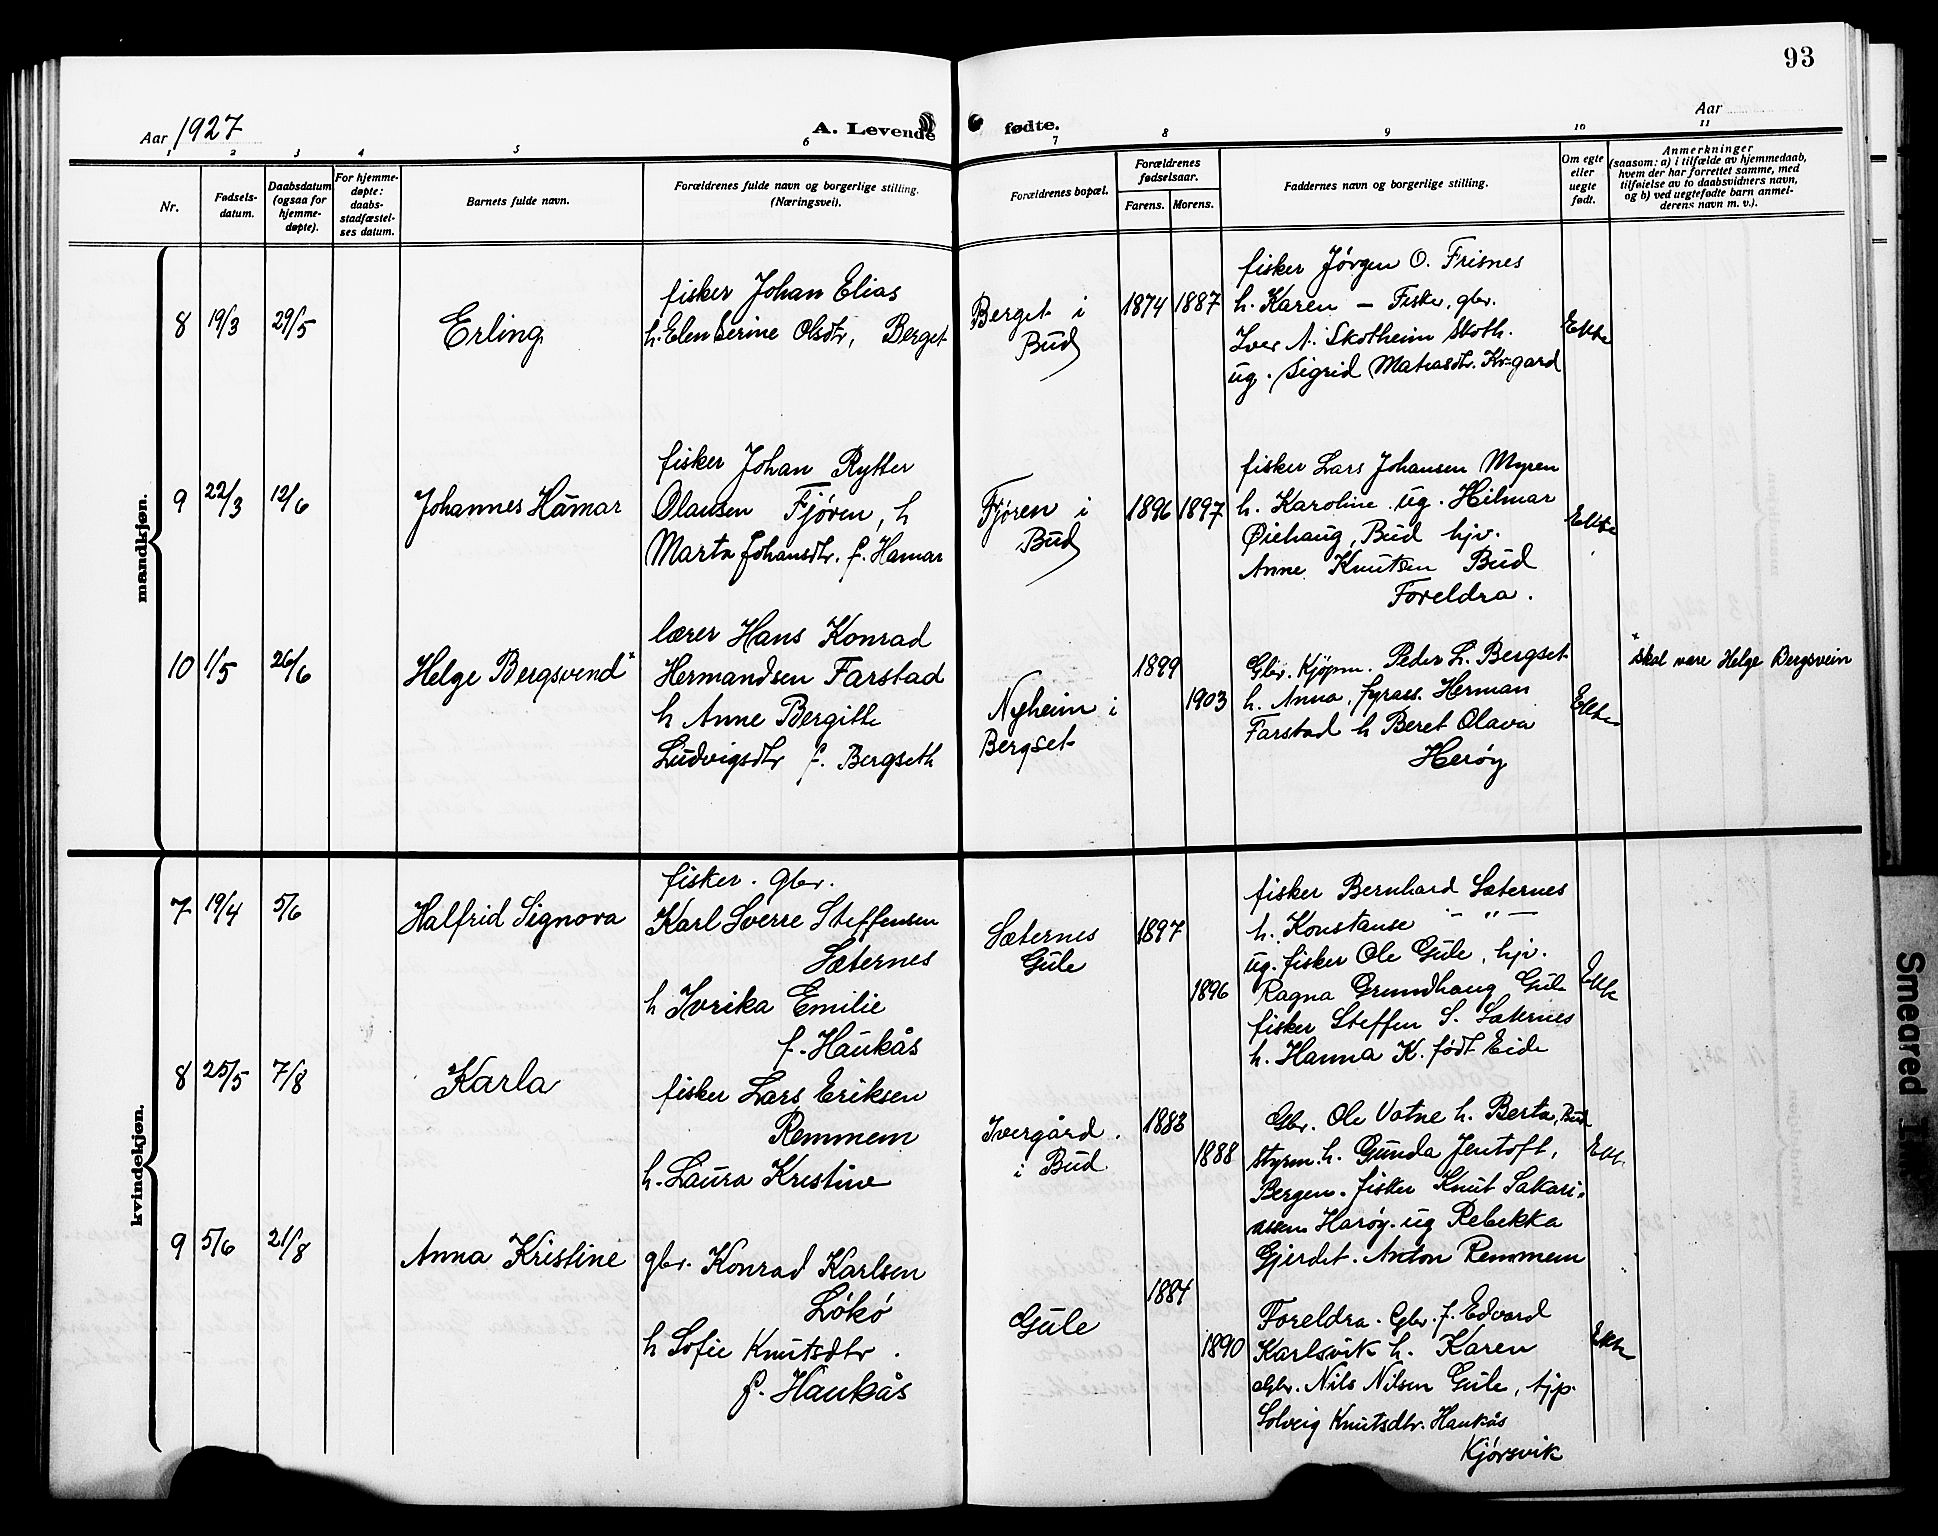 93
Aar 1927
A. Levende fødte.
Aar
1 2 3 4 5 6 7 8 9 10 11
Nr.
Fødsels-
datum.
Daabsdatum
(ogsaa for
hjemme-
døpte).
For hjemme-
døpte:
daabs-
stadfæstel-
ses datum.
Barnets fulde navn.
Forældrenes fulde navn og borgerlige stilling.
(Næringsvei).
Forældrenes bopæl.
Forældrenes
fødselsaar.
Farens. Morens.
Faddernes navn og borgerlige stilling.
Om egte
eller
uegte
født.
Anmerkninger
(saasom: a) i tilfælde av hjemmedaab,
hvem der har forrettet samme, med
tilføielse av to daabsvidners navn,
og b) ved uegtefødte barn anmel-
derens navn m. v.).
mandkjøn.
8 19/3 29/5
Erling
fisker Johan Elias
h. Elen Serine Olsdtr, Berget
Berget i
Bud
1874 1887
fisker Jørgen O. Frisnes
h. Karen – Fisker, gbr.
Iver N. Skotheim Skoth.
ug. Sigrid Matiasdtr. Kv-gard
Ekte
9 22/3 12/6
Johannes Hamar
fisker Johan Rytter
Olausen Fjøren, h
Marta Johansdtr. f. Hamar
Fjøren i
Bud
1896 1897
fisker Lars Johansen Myren
h. Karoline. ug. Hilmar
Øiehaug, Bud hjv.
Anne Knutsen Bud
Foreldra.
Ekte
10 1/5 26/6
Helge Bergsvend x
lærer Hans Konrad
Hermandsen Farstad
h Anne Bergitte
Ludvigsdtr f. Bergseth
Nyheim i
Bergset
1899
1903
Gbr. Kjøpm. Peder L. Bergset
h. Anna, fyrass. Herman
Farstad h Beret Olava
Herøy
Ekte
x
skal være Helge Bergsvein
kvindekjøn.
7 19/4 5/6
Halfrid Signova
fisker. gbr.
Karl Sverre Steffensen
Sæternes
h Ivrika Emilie
f. Haukås
Sæternes
Gule
1897
1896
fisker Bernhard Sæternes
h. Konstanse – " –
ug. fisker Ole Gule, hjv.
Ragna Grundhaug Gule
fisker Steffen S. Sæternes
h. Hanna K. født Eide
Ekte
8 25/5 7/8
Karla
fisker Lars Eriksen
Remmem
h. Laura Kristine
Ivergård.
i Bud
1883
1888
Gbr. Ole Vatne h. Berta, Bud
styrm. h. Gunda Jentoft,
Bergen. fisker Knut Sakari-
assen Harøy. ug Rebekka
Gjerdet. Anton Remmem
Ekte
9 5/6 21/8
Anna Kristine
gbr. Konrad Karlsen
Løkø
h Sofie Knutsdtr.
f. Haukås
Gule
1884
1890
Foreldra. Gbr. f. Edvard
Karlsvik h. Karen
Gbr. Nils Nilsen Gule, tjp.
Solveig Knutsdtr. Haukås
Kjørsvik
Ekte
Smeared